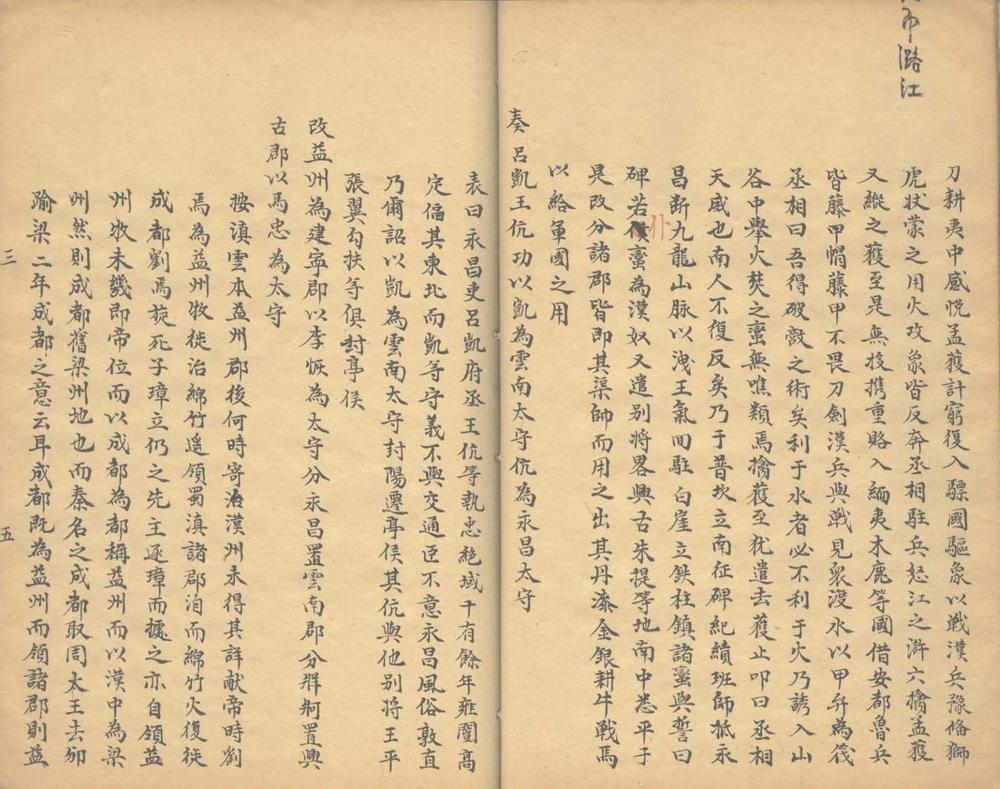 布潞江
刀耕夷中感悦孟獲計窮復入驃國驅象以戰漢兵豫俻獅
虎狀蒙之用火攻象皆反奔丞相駐兵怒江之滸六擒孟獲
又縱之獲至是無投携重賂入緬夷木鹿等國借安都魯兵
皆藤甲帽藤甲不畏刀劍漢兵與戰見衆渡水以甲弁為筏
丞相曰吾得破毅之術矣利于水者必不利于火乃誘入山
谷中舉火焚之蠻無噍類焉擒獲至犹遣去獲止叩曰丞相
天威也南人不復反矣乃于普坎立南征碑紀績班師抵永
昌斷九龍山脉以洩王氣回駐白崖立鉄柱鎮諸蠻與誓曰
碑若仆蠻為漢奴又遣别將畧興古朱提等地南中悉平于
是改分諸郡皆即其渠師而用之出其丹漆金銀耕牛戰馬
以給軍國之用
奏呂凱王伉功以凱為雲南太守伉為永昌太守
表曰永昌吏呂凱府丞王伉等執忠絶域十有餘年雍闓高
定偪其東北而凱等守義不與交通臣不意永昌風俗敦直
乃爾詔以凱為雲南太守封陽遷亭侯其伉與他别將王平
張翼勾扶等俱封亭侯
改益州為建寕郡以李恢為太守分永昌置雲南郡分牂牁置興
古郡以馬忠為太守
按滇雲本益州郡後何時寄治漢州未得其詳献帝時劉
焉為益州牧徙治綿竹遙領蜀滇諸郡洎而綿竹火復徙
成都劉焉旋死子璋立仍之先主逐璋而據之亦自領益
州牧未幾即帝位而以成都為都稱益州而以漢中為梁
州然則成都舊梁州地也而秦名之成都取周太王去邠
踰梁二年成都之意云耳成都既為益州而領諸郡則益
三
五